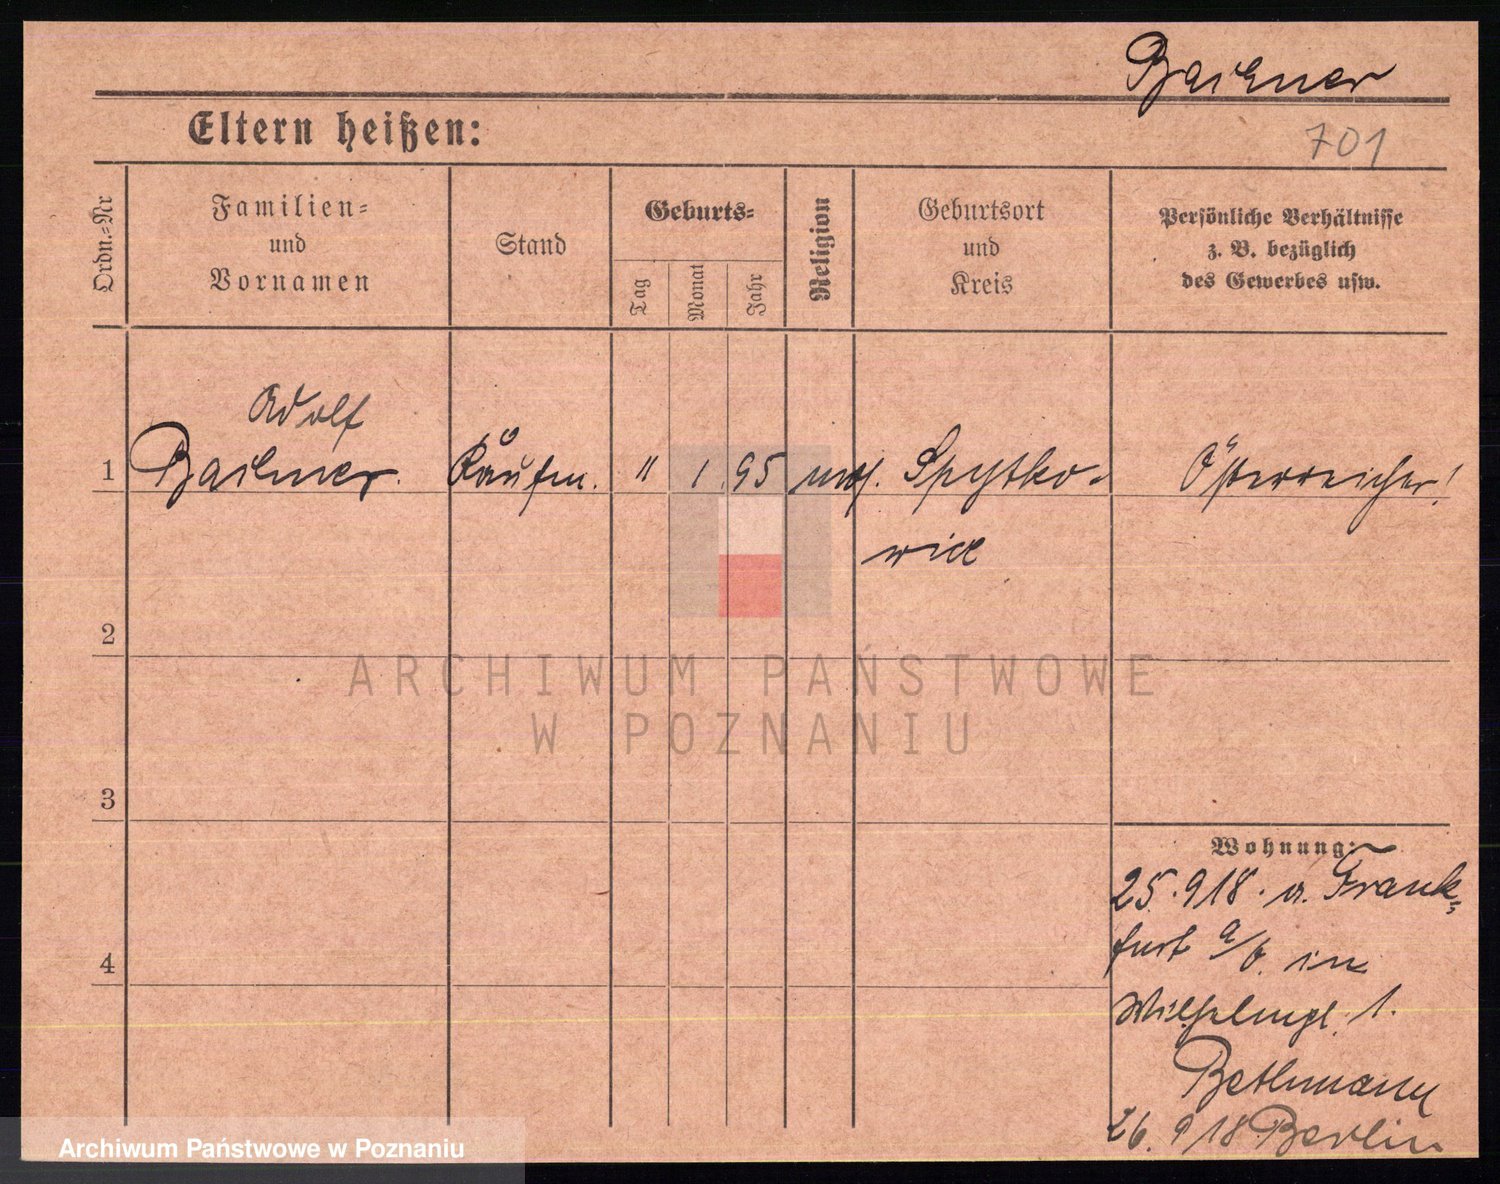 Bachner
701
Eltern heißen:
Ordn.-Nr
Familien- und Vornamen
Stand
Geburts-
Tag
Monat
Jahr
Religion
Geburtsort und Kreis
Persönliche Verhältnisse z. B. bezüglich des Gewerbes usw.
Adolf
1 Bachner. Kaufm. 11 1. 95 mos. Spytko-
wice
Österreicher!
2
3
4
Wohnung:
25.918. a. Frank-
furt a/O. in
Wilhelmpl. 1.
Bethmann
26.918 Berlin
ARCHIWUM PAŃSTWOWE
W POZNANIU
Archiwum Państwowe w Poznaniu